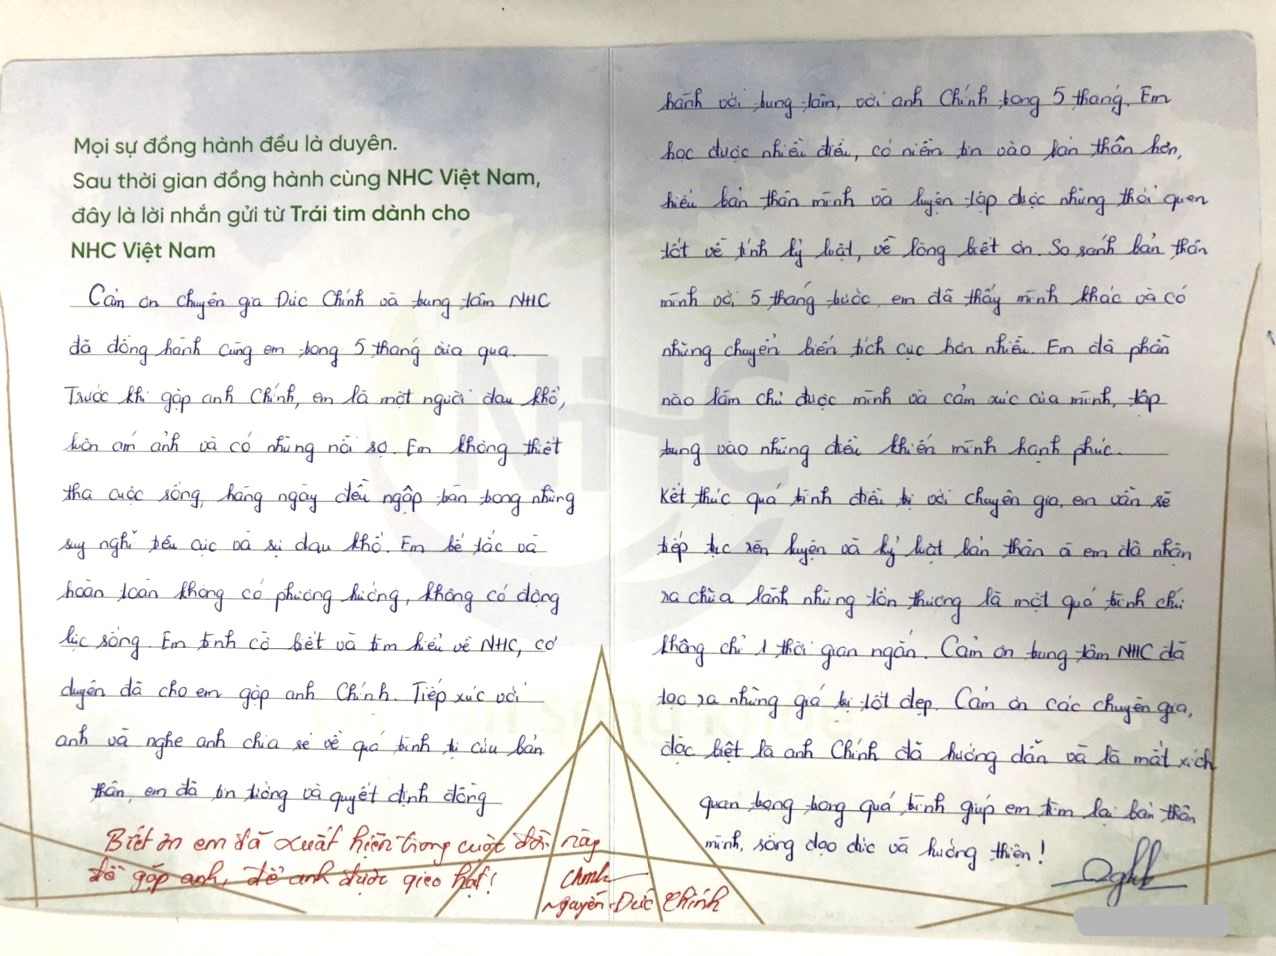 Mọi sự đồng hành đều là duyên.
Sau thời gian đồng hành cùng NHC Việt Nam,
đây là lời nhắn gửi từ Trái tim dành cho
NHC Việt Nam
Cảm ơn chuyên gia Đức Chính và trung tâm NHC
đã đồng hành cùng em trong 5 tháng vừa qua.
Trước khi gặp anh Chính, em là một người đau khổ,
luôn ám ảnh và có những nỗi sợ. Em không thiết
tha cuộc sống, hàng ngày đều ngập tràn trong những
suy nghĩ tiêu cực và sự đau khổ. Em bế tắc và
hoàn toàn không có phương hướng, không có động
lực sống. Em tình cờ biết và tìm hiểu về NHC, cơ
duyên đã cho em gặp anh Chính. Tiếp xúc với
anh và nghe anh chia sẻ về quá trình trị của bản
thân, em đã tin tưởng và quyết định đồng
Biết ơn em đã xuất hiện trong cuộc đời này
để gặp anh, để anh được gieo hạt!
Chính
Nguyễn Đức Chính
hành với trung tâm, với anh Chính trong 5 tháng. Em
học được nhiều điều, có niềm tin vào bản thân hơn,
hiểu bản thân mình và luyện tập được những thói quen
tốt về tính kỷ luật, về lòng biết ơn. So sánh bản thân
mình với 5 tháng trước, em đã thấy mình khác và có
những chuyển biến tích cực hơn nhiều. Em đã phần
nào làm chủ được mình và cảm xúc của mình, tập
trung vào những điều khiến mình hạnh phúc.
Kết thúc quá trình điều trị với chuyên gia, em vẫn sẽ
tiếp tục rèn luyện và kỷ luật bản thân ạ em đã nhận
ra chữa lành những tổn thương là một quá trình chứ
không chỉ 1 thời gian ngắn. Cảm ơn trung tâm NHC đã
tạo ra những giá trị tốt đẹp. Cảm ơn các chuyên gia,
đặc biệt là anh Chính đã hướng dẫn và là mắt xích
quan trọng trong quá trình giúp em tìm lại bản thân
mình, sống đạo đức và hướng thiện!
NHC